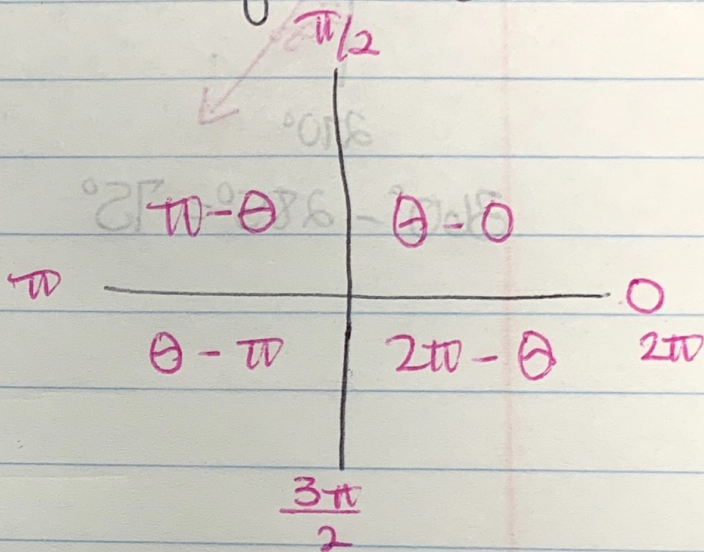 π/2
π-θ θ-0
π 0
θ-π 2π-θ 2π
3π/2